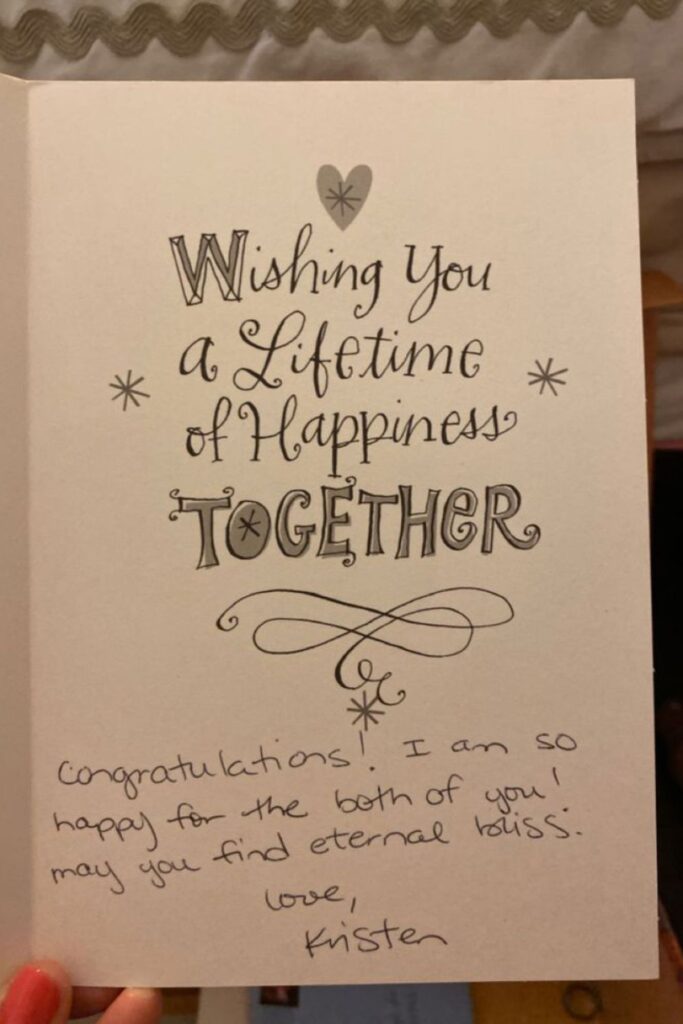 Wishing You
a Lifetime
of Happiness
TOGETHER
Congratulations! I am so
happy for the both of you!
may you find eternal bliss.
Love,
Kristen